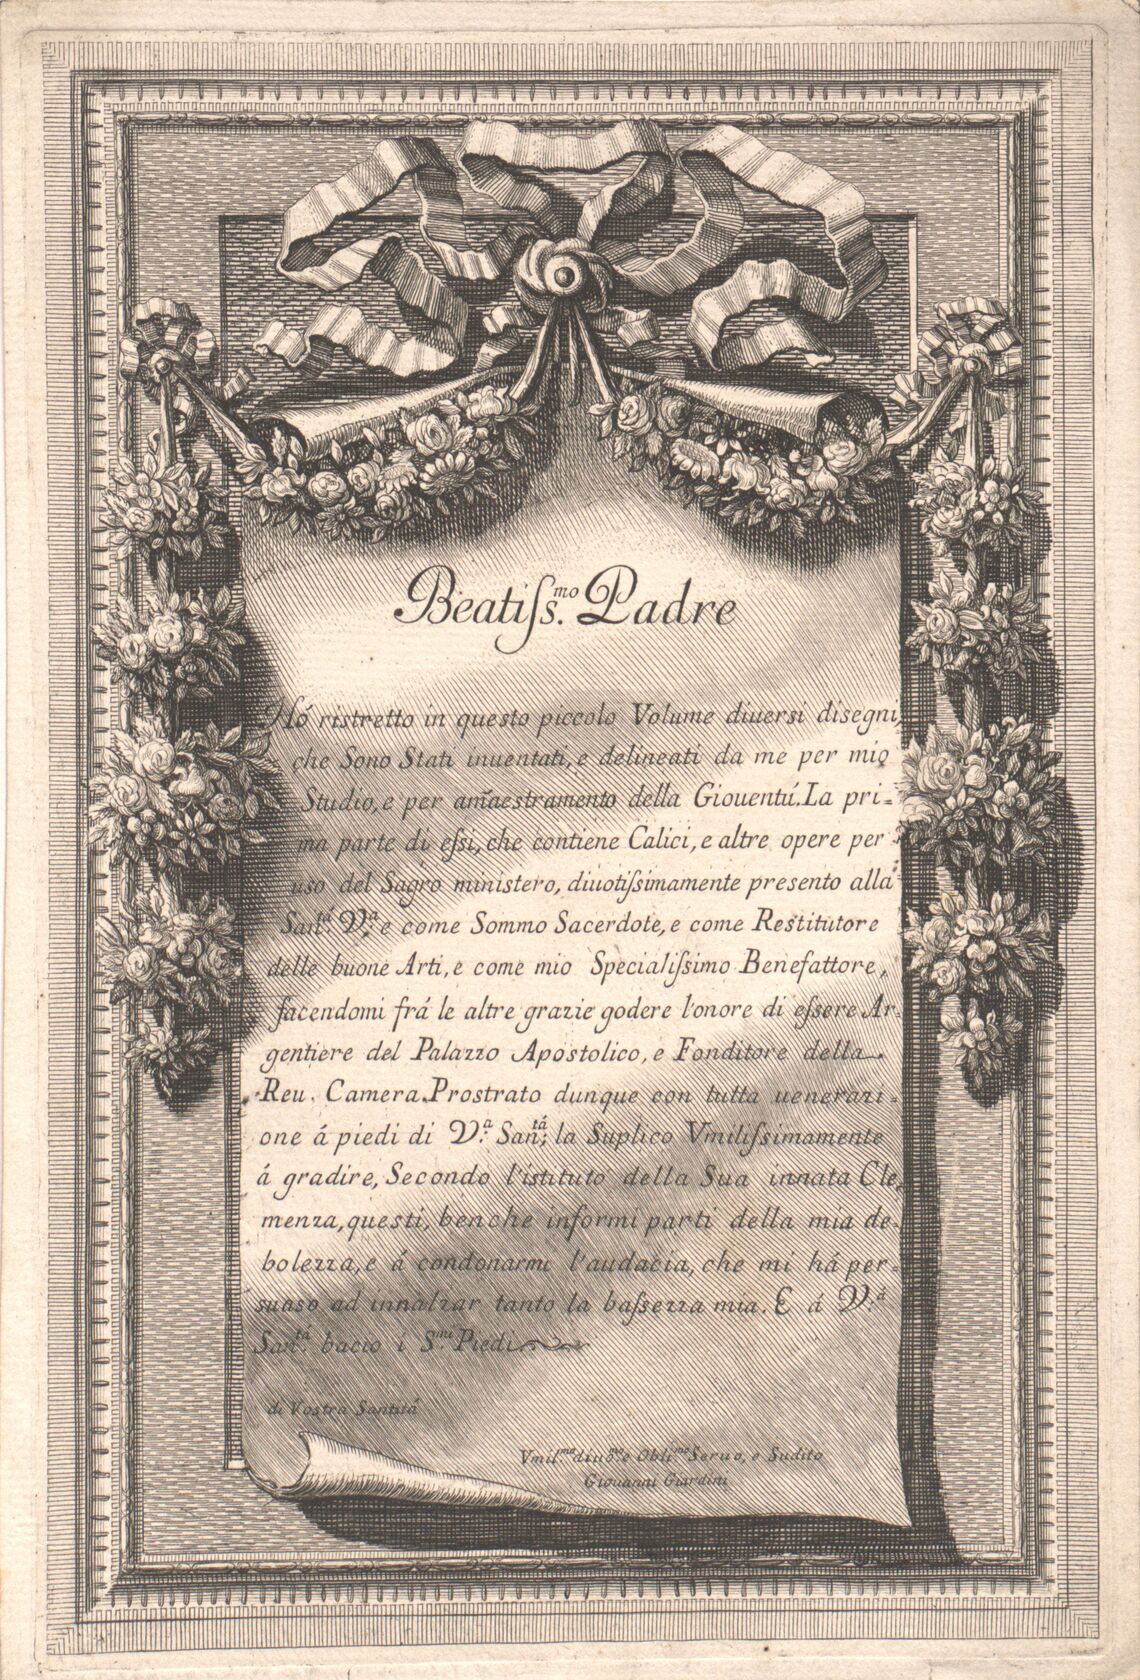 Beatiſs.ᵐᵒ Padre
Hó ristretto in questo piccolo Volume diuersi disegni,
che Sono Stati inuentati, e delineati da me per mio
Studio, e per am̃aestramento della Giouentú. La pri=
ma parte di eſsi, che contiene Calici, e altre opere per
uso del Sagro ministero, diuotiſsimamente presento alla
San.ᵗᵃ V.ᵃ e come Sommo Sacerdote, e come Restitutore
delle buone Arti, e come mio Specialiſsimo Benefattore,
facendomi frá le altre grazie godere l'onore di eſsere Ar=
gentiere del Palazzo Apostolico, e Fonditore della
Reu. Camera. Prostrato dunque con tutta uenerazi=
one á piedi di V.ᵃ San.ᵗᵃ; la Suplico Vmiliſsimamente
á gradire, Secondo l'istituto della Sua innata Cle=
menza, questi, benche informi parti della mia de=
bolezza, e á condonarmi l'audacia, che mi há per=
suaso ad innalzar tanto la baſsezza mia. E á V.ᵃ
San.ᵗᵃ bacio i S.ᵐⁱ Piedi
di Vostra Santitá
Vmil.ᵐᵒ diuo.ᵐᵒ e Obli.ᵐᵒ Seruo, e Sudito
Giouanni Giardini